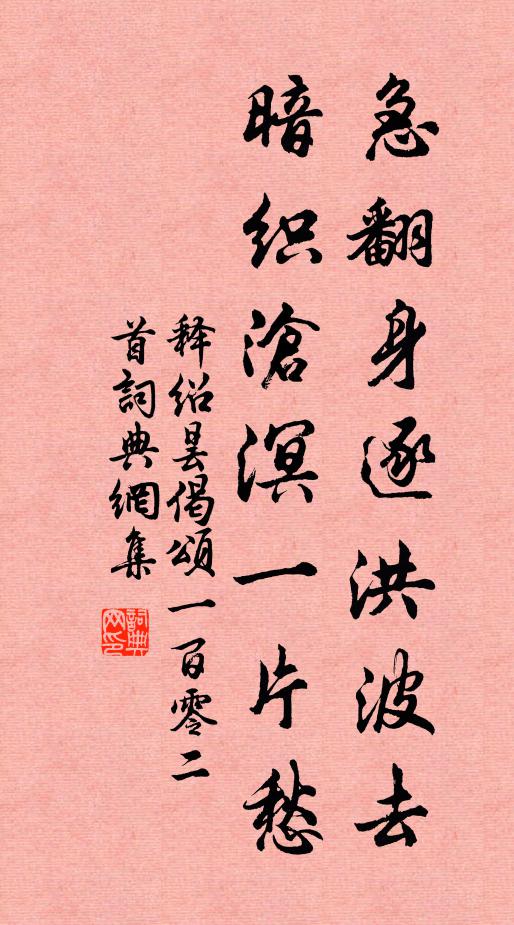 急翻身逐洪波去
暗织滄溟一片愁
释绍昙偈頌一百零二
首詞典網集
詞典网印